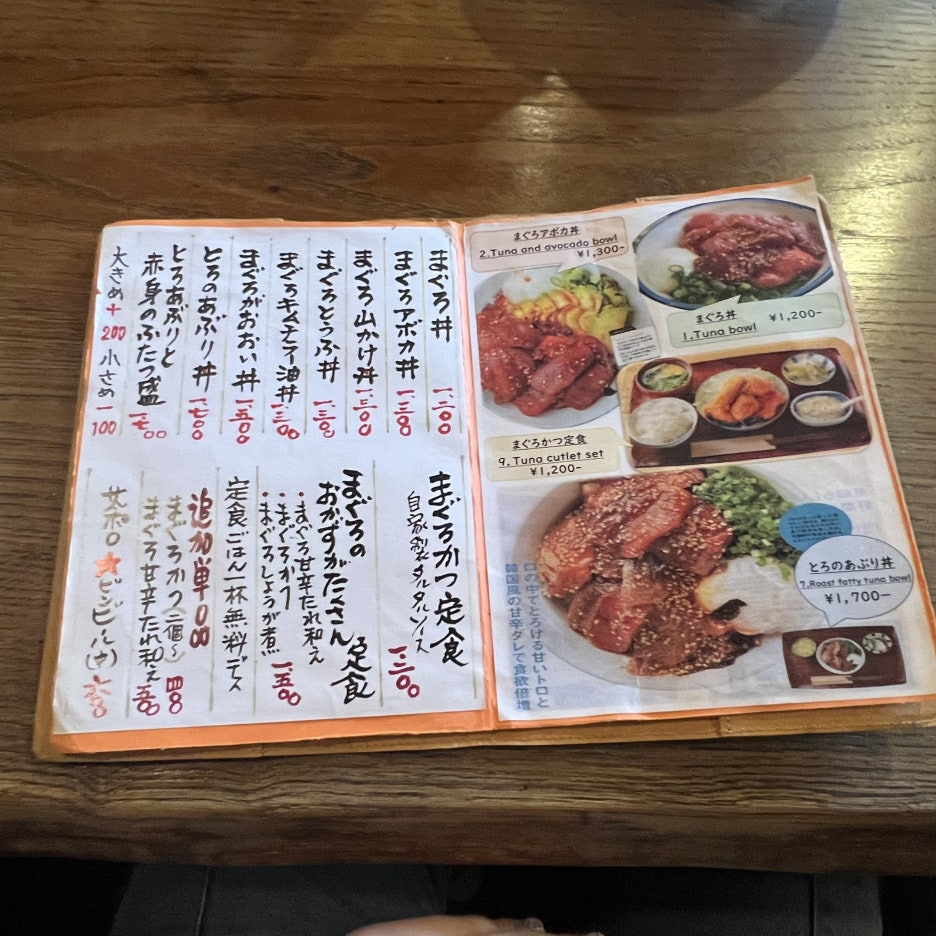 まぐろ丼 1.200
まぐろアボカ丼 1.300
まぐろ山かけ丼 1.300
まぐろとうふ丼 1.300
まぐろキムチラー油丼 1.300
まぐろがおおい丼 1.500
とろのあぶり丼 1.700
とろあぶりと
赤身のふたつ盛 1.700
大きめ+200 小さめー100
まぐろかつ定食
自家製タルタルソース 1.300
まぐろの
おかずがたくさん定食
・まぐろ甘辛たれ和え
・まぐろかつ
・まぐろしょうが煮 1.500
定食ごはん一杯無料デス
追加単品
まぐろかつ(二個〜) 400
まぐろ甘辛たれ和え 500
サッポロ★ビンビール(中)
まぐろアボカ丼
2.Tuna and avocado bowl
¥1,300-
まぐろ丼 ¥1,200-
1.Tuna bowl
まぐろかつ定食
9. Tuna cutlet set
¥1,200-
とろのあぶり丼
7.Roast fatty tuna bowl
¥1,700-
口の中でとろける甘いトロと
韓国風の甘辛ダレで食欲倍増